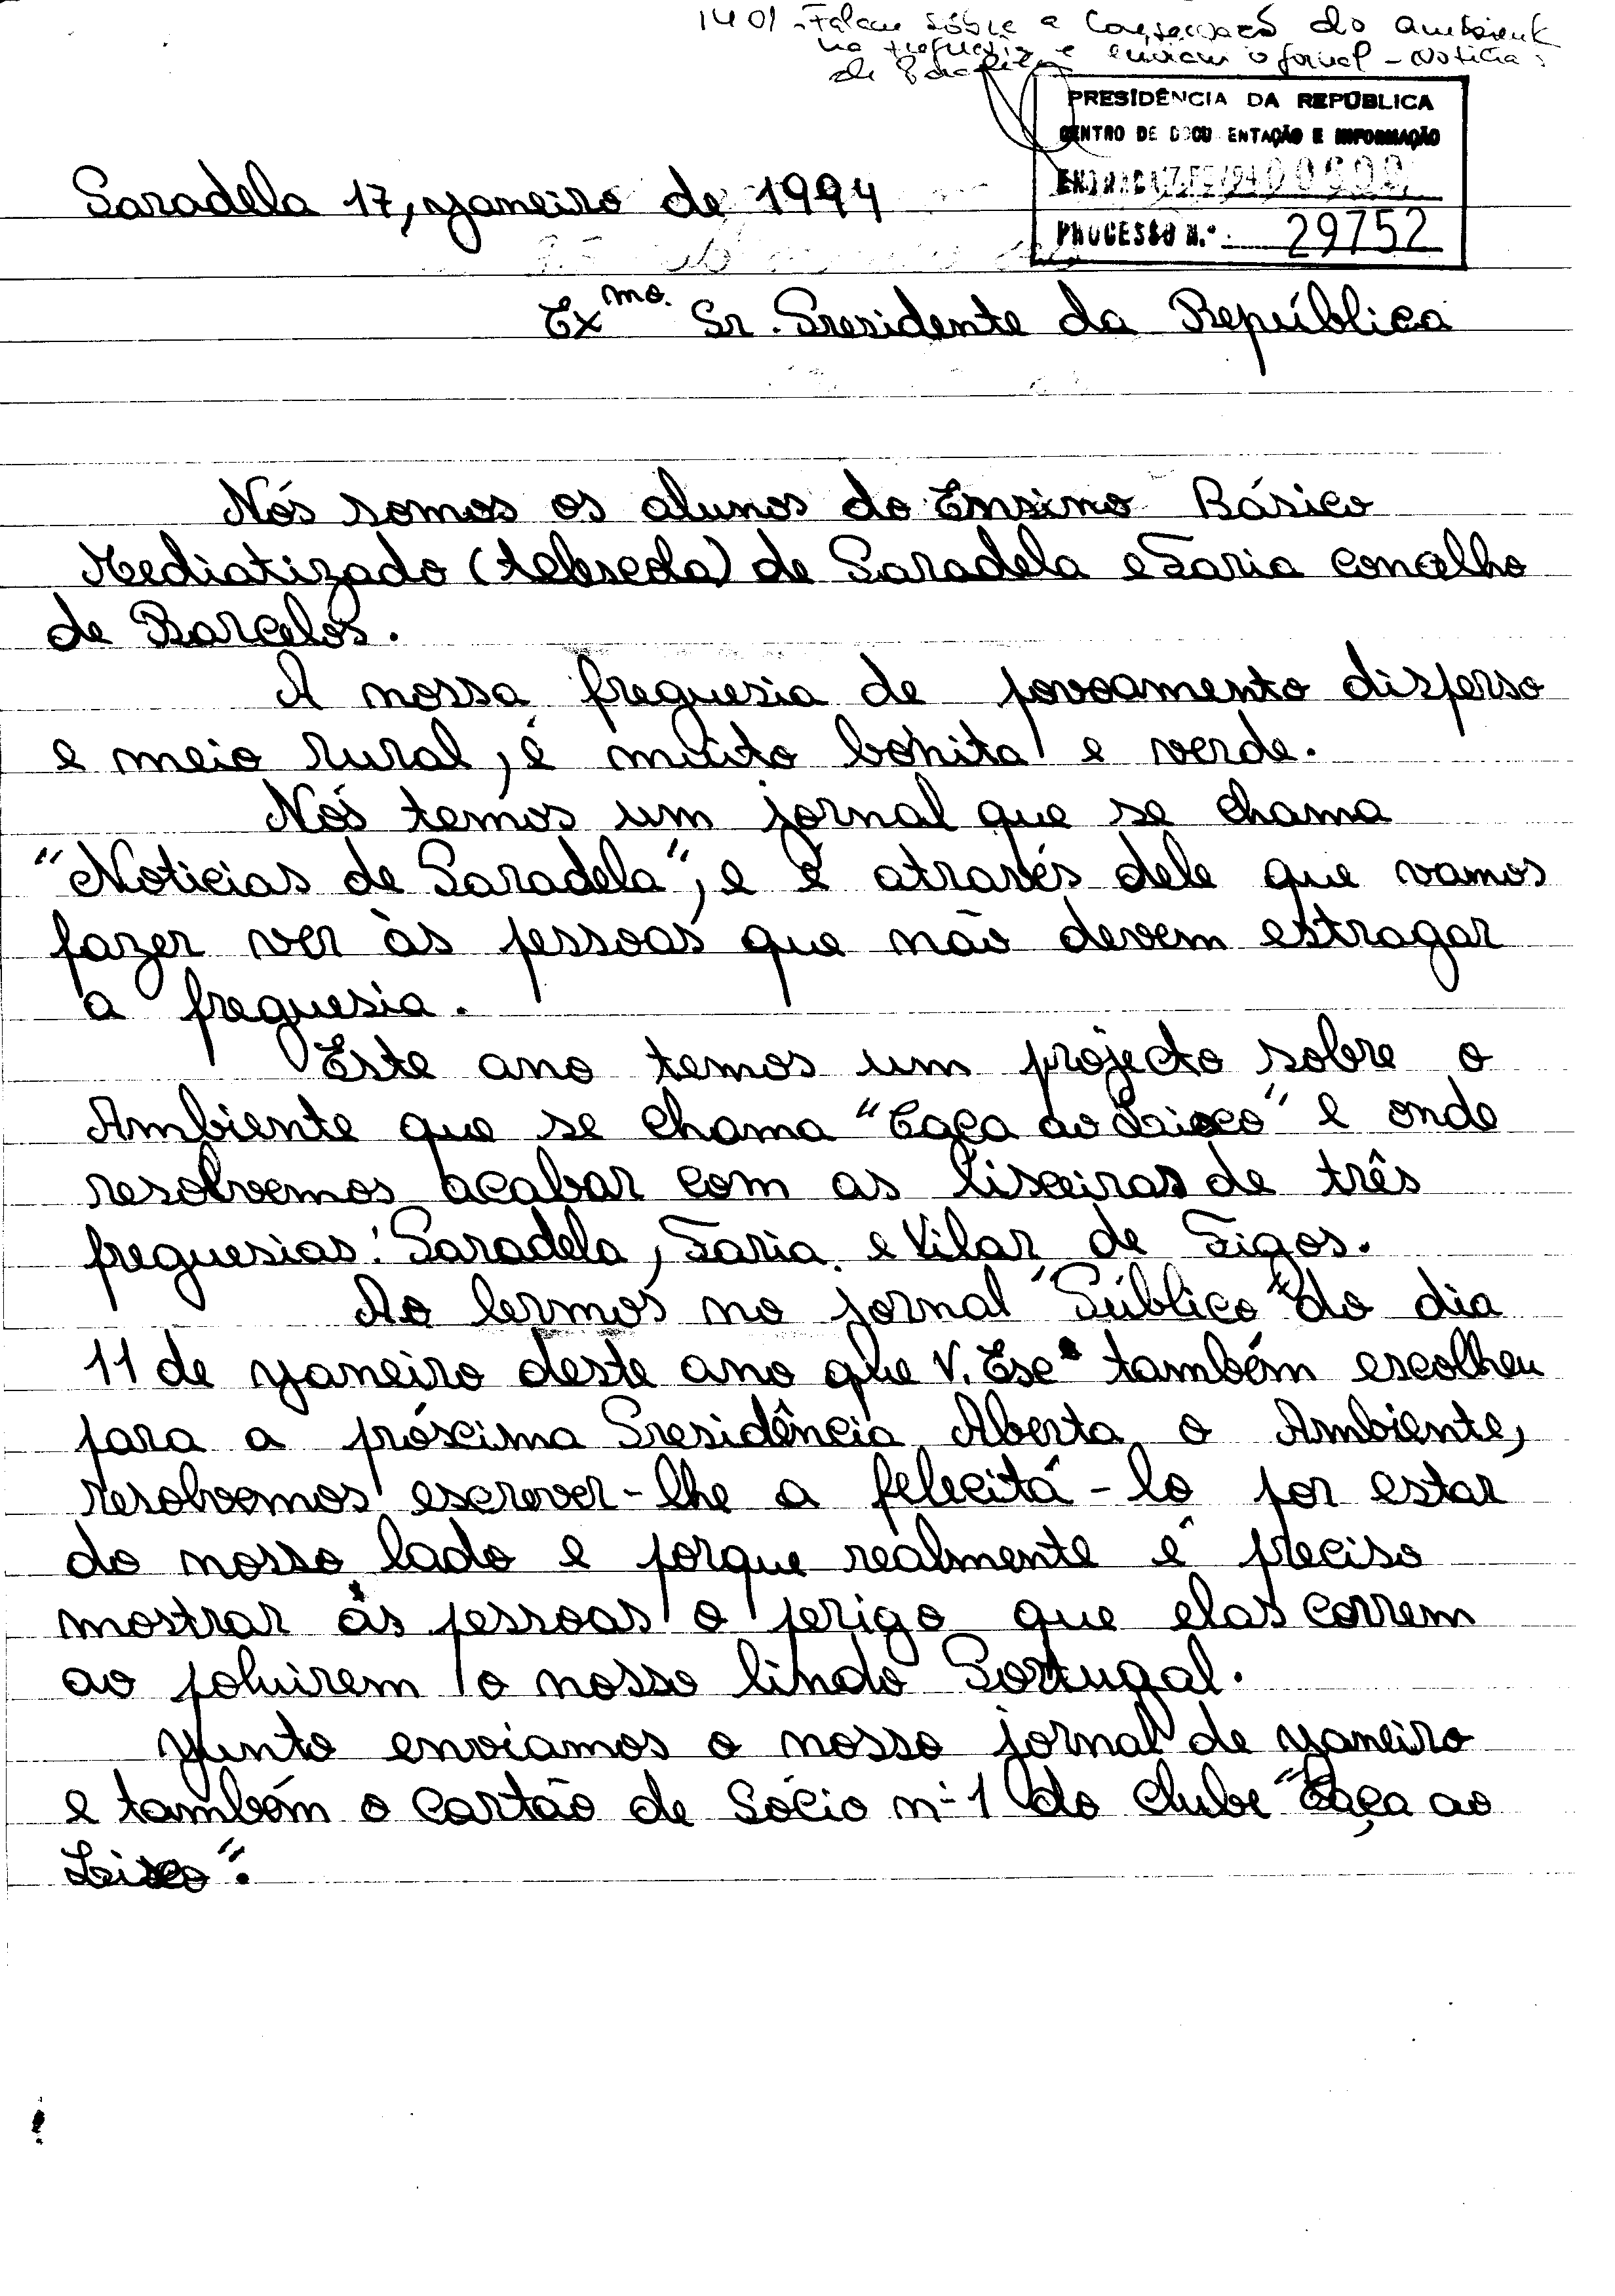 1401 - Falam sôbre a Conservação do ambiente
na freguesia e enviam o jornal - Noticias
de Paradela
PRESIDÊNCIA DA REPÚBLICA
CENTRO DE DOCU ENTAÇÃO E INFORMAÇÃO
ENTRADA
PROCESSO N.º 29752
Paradela 17, janeiro de 1994
Exmo. Sr. Presidente da República
Nós somos os alunos do Ensino Básico
Mediatizado (telescola) de Paradela e Faria concelho
de Barcelos.
A nossa freguesia de povoamento disperso
e meio rural, é muito bonita e verde.
Nós temos um jornal que se chama
"Noticias de Paradela", e é através dele que vamos
fazer ver às pessoas que não devem estragar
a freguesia.
Este ano temos um projecto sobre o
Ambiente que se chama "Caça ao Lixo" e onde
resolvemos acabar com as lixeiras de três
freguesias: Paradela, Faria e Vilar de Figos.
Ao lermos no jornal "Público" do dia
11 de janeiro deste ano que V. Exª também escolheu
para a próxima Presidência Aberta o Ambiente,
resolvemos escrever-lhe a felecitá-lo por estar
do nosso lado e porque realmente é preciso
mostrar às pessoas o perigo que elas correm
ao poluirem o nosso lindo Portugal.
Junto enviamos o nosso jornal de janeiro
e também o cartão de Sócio nº 1 do clube "Caça ao
Lixo".